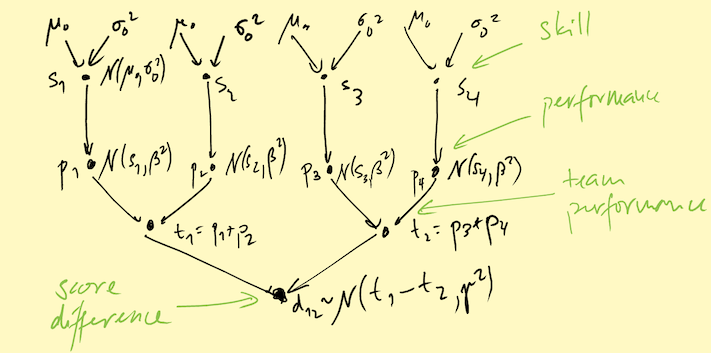 μ₀ σ₀² μ₀ σ₀² μ₀ σ₀² μ₀ σ₀²
skill
s₁ N(μ₀, σ₀²) s₂ s₃ s₄
performance
p₁ N(s₁, β²) p₂ N(s₂, β²) p₃ N(s₃, β²) p₄ N(s₄, β²)
team
performance
t₁ = p₁ + p₂ t₂ = p₃ + p₄
score
difference
d₁₂ ~ N(t₁ − t₂, γ²)